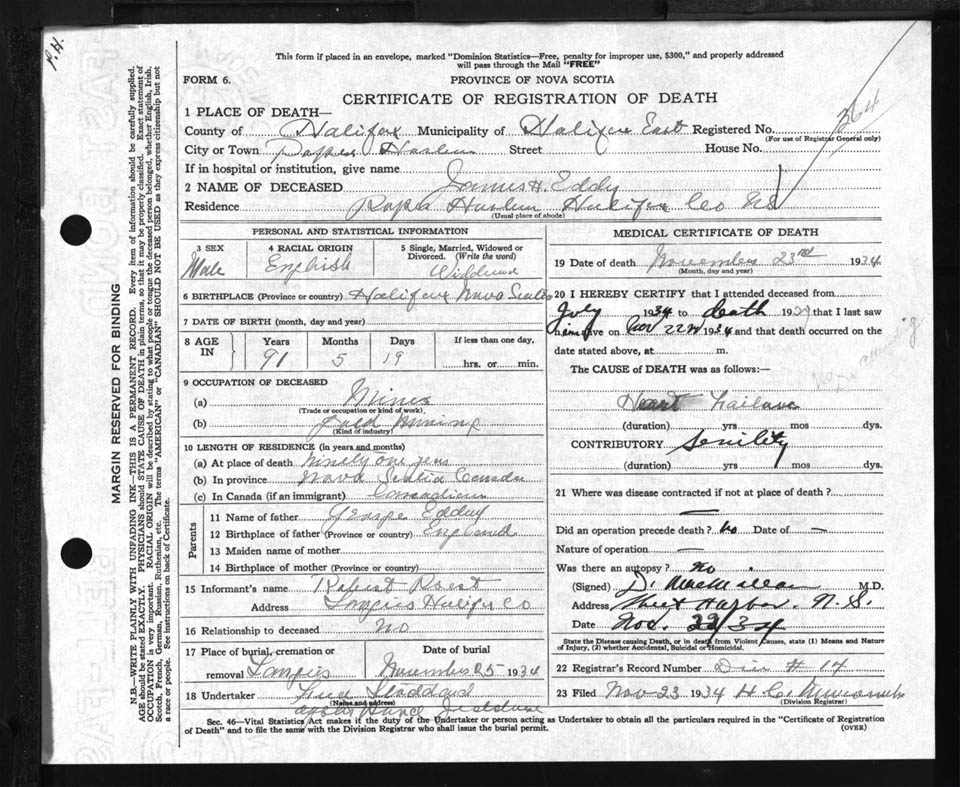 P.H.
This form if placed in an envelope, marked "Dominion Statistics—Free, penalty for improper use, $300," and properly addressed
will pass through the Mail "FREE"
FORM 6.
PROVINCE OF NOVA SCOTIA
CERTIFICATE OF REGISTRATION OF DEATH
364
1 PLACE OF DEATH—
County of Halifax Municipality of Halifax East Registered No.
(For use of Registrar General only)
City or Town Street House No.
If in hospital or institution, give name
2 NAME OF DECEASED James H. Eddy
Residence Halifax Co NS
(Usual place of abode)
PERSONAL AND STATISTICAL INFORMATION
3 SEX
Male
4 RACIAL ORIGIN
English
5 Single, Married, Widowed or
Divorced. (Write the word)
6 BIRTHPLACE (Province or country) Halifax Nova Scotia
7 DATE OF BIRTH (month, day and year)
8 AGE IN
Years Months Days If less than one day,
91 5 19 hrs. or min.
9 OCCUPATION OF DECEASED
(a) Miner
(Trade or occupation or kind of work)
(b) Gold Mining
(Kind of industry)
10 LENGTH OF RESIDENCE (in years and months)
(a) At place of death Ninety one
(b) In province Nova Scotia Canada
(c) In Canada (if an immigrant) Canadian
Parents
11 Name of father George Edduy
12 Birthplace of father (Province or country) England
13 Maiden name of mother
14 Birthplace of mother (Province or country)
15 Informant's name Robert
Address Halifax Co
16 Relationship to deceased No
17 Place of burial, cremation or
removal
Date of burial
November 25 1934
18 Undertaker Stoddard
(Name and address)
MEDICAL CERTIFICATE OF DEATH
19 Date of death November 23rd 1934
(Month, day and year)
20 I HEREBY CERTIFY that I attended deceased from
July 1934 to death 1934 that I last saw
him alive on Nov 22nd 1934 and that death occurred on
date stated above, at m.
The CAUSE of DEATH was as follows:—
Heart Failure
(duration) yrs mos dys.
CONTRIBUTORY Senility
(duration) yrs mos dys.
21 Where was disease contracted if not at place of death?
—
Did an operation precede death? No Date of —
Nature of operation —
Was there an autopsy? No
(Signed) M.D.
Address Harbor. N.S.
Date Nov. 23 34
State the Disease causing Death, or in death from Violent Causes, state (1) Means and Nature
of Injury, (2) whether Accidental, Suicidal or Homicidal.
22 Registrar's Record Number Div # 14
23 Filed Nov 23 1934 H. C.
(Division Registrar)
Sec. 46—Vital Statistics Act makes it the duty of the Undertaker or person acting as Undertaker to obtain all the particulars required in the "Certificate of Registration
of Death" and to file the same with the Division Registrar who shall issue the burial permit.
(OVER)
MARGIN RESERVED FOR BINDING
N.B.—WRITE PLAINLY WITH UNFADING INK—THIS IS A PERMANENT RECORD. Every item of information should be carefully supplied.
AGE should be stated EXACTLY. PHYSICIANS should STATE CAUSE OF DEATH in plain terms, so that it may be properly classified. Exact statement of
OCCUPATION is very important. RACIAL ORIGIN will be described by stating to what people or tongue the deceased person belonged, whether English, Irish,
Scotch, French, German, Russian, Ruthenian, etc. The terms "AMERICAN" or "CANADIAN" SHOULD NOT BE USED as they express citizenship but not
a race or people. See instructions on back of Certificate.